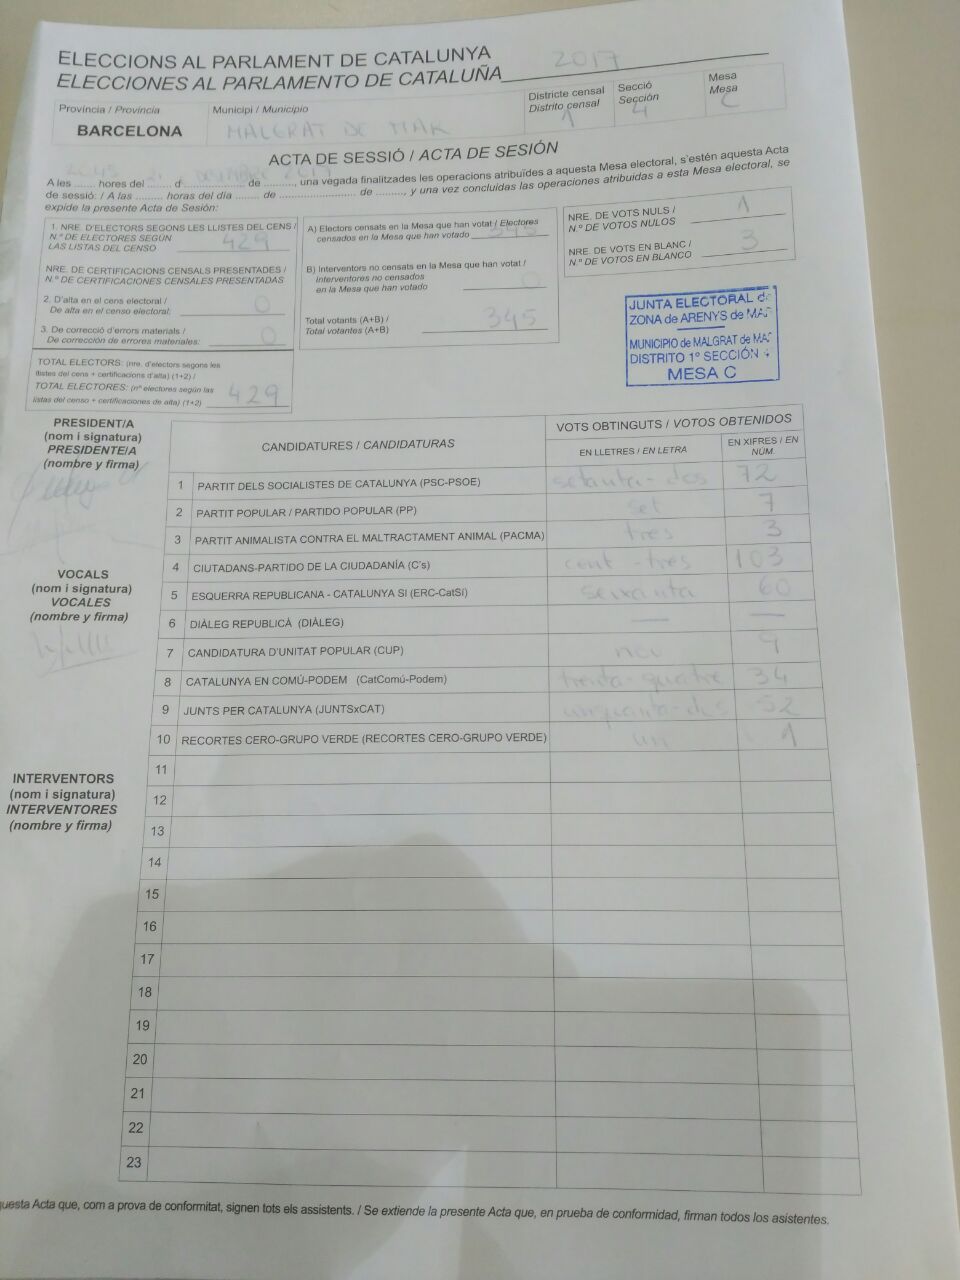 ELECCIONS AL PARLAMENT DE CATALUNYA
ELECCIONES AL PARLAMENTO DE CATALUÑA 2017
Província / Provincia
BARCELONA
Municipi / Municipio
MALGRAT DE MAR
Districte censal
Distrito censal
1
Secció
Sección
4
Mesa
Mesa
C
ACTA DE SESSIÓ / ACTA DE SESIÓN
A les ........ hores del ........ d ........................ de ........., una vegada finalitzades les operacions atribuïdes a aquesta Mesa electoral, s'estén aquesta Acta
de sessió: / A las ......... horas del día ........ de ........................... de ........., y una vez concluidas las operaciones atribuidas a esta Mesa electoral, se
expide la presente Acta de Sesión:
1. NRE. D'ELECTORS SEGONS LES LLISTES DEL CENS /
N.º DE ELECTORES SEGÚN
LAS LISTAS DEL CENSO 429
NRE. DE CERTIFICACIONS CENSALS PRESENTADES /
N.º DE CERTIFICACIONES CENSALES PRESENTADAS
2. D'alta en el cens electoral /
De alta en el censo electoral: 0
3. De correcció d'errors materials /
De corrección de errores materiales: 0
TOTAL ELECTORS: (nre. d'electors segons les
llistes del cens + certificacions d'alta) (1+2) /
TOTAL ELECTORES: (nº electores según las
listas del censo + certificaciones de alta) (1+2) 429
A) Electors censats en la Mesa que han votat / Electores
censados en la Mesa que han votado 345
B) Interventors no censats en la Mesa que han votat /
Interventores no censados
en la Mesa que han votado 0
Total votants (A+B) /
Total votantes (A+B) 345
NRE. DE VOTS NULS /
N.º DE VOTOS NULOS 1
NRE. DE VOTS EN BLANC /
N.º DE VOTOS EN BLANCO 3
JUNTA ELECTORAL de
ZONA de ARENYS de MAR
MUNICIPIO de MALGRAT de MAR
DISTRITO 1º SECCIÓN 4
MESA C
PRESIDENT/A
(nom i signatura)
PRESIDENTE/A
(nombre y firma)
VOCALS
(nom i signatura)
VOCALES
(nombre y firma)
INTERVENTORS
(nom i signatura)
INTERVENTORES
(nombre y firma)
CANDIDATURES / CANDIDATURAS
VOTS OBTINGUTS / VOTOS OBTENIDOS
EN LLETRES / EN LETRA
EN XIFRES / EN
NÚM.
1 PARTIT DELS SOCIALISTES DE CATALUNYA (PSC-PSOE) setanta-dos 72
2 PARTIT POPULAR / PARTIDO POPULAR (PP) set 7
3 PARTIT ANIMALISTA CONTRA EL MALTRACTAMENT ANIMAL (PACMA) tres 3
4 CIUTADANS-PARTIDO DE LA CIUDADANÍA (C's) cent -tres 103
5 ESQUERRA REPUBLICANA - CATALUNYA SI (ERC-CatSí) seixanta 60
6 DIÀLEG REPUBLICÀ (DIÀLEG) — —
7 CANDIDATURA D'UNITAT POPULAR (CUP) nou 9
8 CATALUNYA EN COMÚ-PODEM (CatComú-Podem) trenta-quatre 34
9 JUNTS PER CATALUNYA (JUNTSxCAT) 52
10 RECORTES CERO-GRUPO VERDE (RECORTES CERO-GRUPO VERDE) un 1
11
12
13
14
15
16
17
18
19
20
21
22
23
questa Acta que, com a prova de conformitat, signen tots els assistents. / Se extiende la presente Acta que, en prueba de conformidad, firman todos los asistentes.